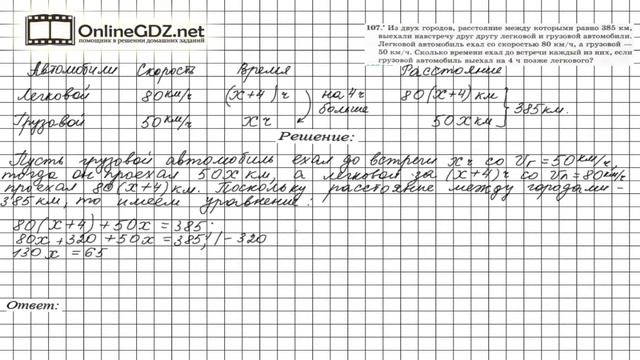 OnlineGDZ.net
ПОМОЩНИК В РЕШЕНИИ ДОМАШНИХ ЗАДАНИЙ
107.* Из двух городов, расстояние между которыми равно 385 км,
выехали навстречу друг другу легковой и грузовой автомобили.
Легковой автомобиль ехал со скоростью 80 км/ч, а грузовой —
50 км/ч. Сколько времени ехал до встречи каждый из них, если
грузовой автомобиль выехал на 4 ч позже легкового?
Автомобили Скорость Время Расстояние
Легковой 80 км/ч (x+4) ч на 4ч больше 80(x+4) км
Грузовой 50 км/ч x ч 50x км } 385 км.
Решение:
Пусть грузовой автомобиль ехал до встречи x ч со Vг = 50 км/ч,
тогда он проехал 50x км, а легковой за (x+4) ч со Vл = 80 км/ч
проехал 80(x+4) км. Поскольку расстояние между городами –
385 км, то имеем уравнение:
80(x+4) + 50x = 385;
80x + 320 + 50x = 385; | – 320
130x = 65
Ответ: